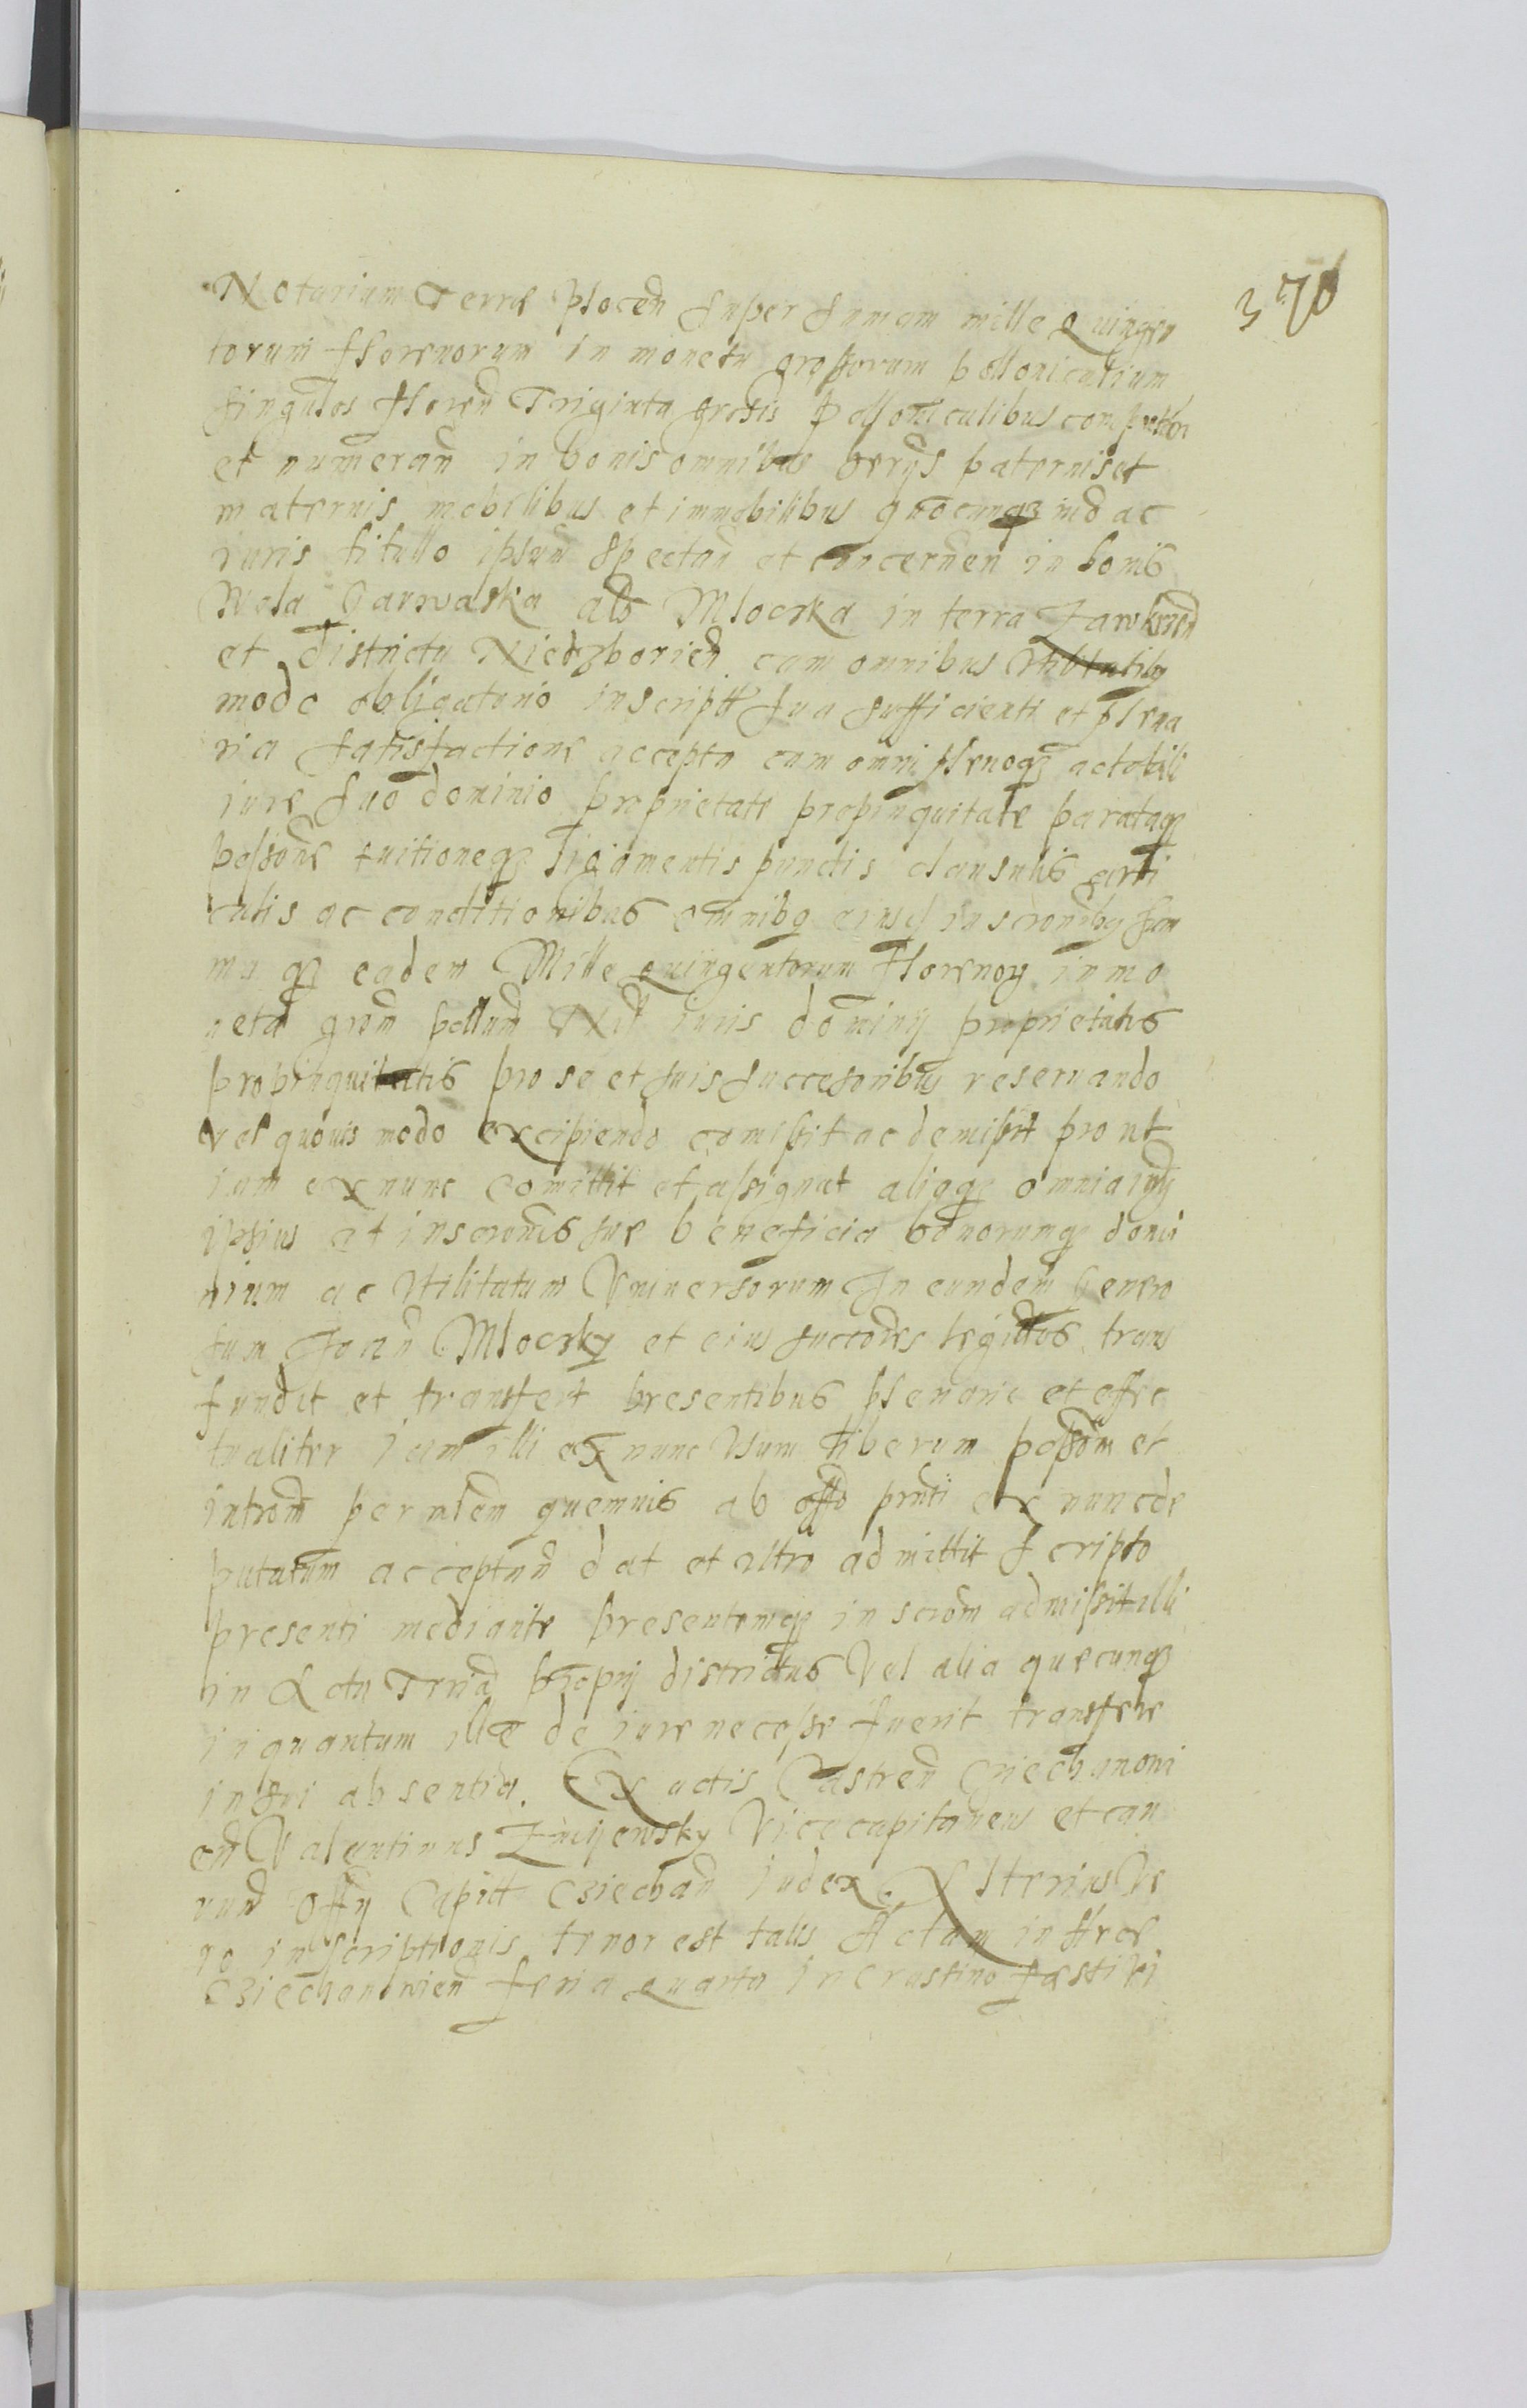 370
Notarium Terræ plocen̄ super sumam mille quingen
torum florenorum in moneta grossorum polloniculium
singulos floren̄ Triginta grosis pollonīculibus computan
et numeran̄ in bonis omnibus veris paternis et
maternis mobilibus et immobilibus quocunqȝ mō ac
iuris titullo ipsum spectan̄ et concernen̄ in bonis
Wola Garwaska als Mloczka in terra Zawkrzen̄
et districtu Niedzborien̄ cum omnibus utilitatibȝ
modo obligatorio inscriptt sua sufficienti et plena
ria satisfactione accepta cum omni plenoqȝ actobili
iure suo dominio proprietate propinquitate parataqȝ
possōne tuitioneqȝ ligamentis punctis clausulis arti
culis ac conditionibus omnibȝ eiusd inscronibȝ sum
ma qȝ eadem Mille quingentorum florenoȝ in mo
neta grom̄ pollum̄ Nil iuris dominij proprietatis
propinquitatis pro se et suis successoribus reseruando
vel quouis modo excipiendo comissit ac demissit prout
iam ex nunc comittit et assignat aliaqȝ omnia
ipsius et inscronis sue beneficia bonorumqȝ domi
nium ac Utilitatum Vniuersorum In eundem Genero
sum Joan̄ Mloczky et eius succores legittos trans
fundit et transfert presentibus plenarie et effec
tualiter iam illi ex nunc usum liberum possōm et
introm̄ per mlem̄ quemuis ab offo prnti ex nunc de
putatum acceptan̄ dat et ultro admittit scripto
presenti mediante presentemqȝ inscrōm admissit illi
in Actu Trria proprij districtus Vel alia quecunqȝ
inquantum ille de iure necesse fuerit transfere
in sui absentia. Ex actis Castren̄ Cziechanoui
en̄ Valentinus Zmijewsky Vicecapitaneus et cau
rum Offij Capitt Cziechan̄ iudex. Alterius Ve
ro inscriptionis tenor est talis Actum in Arce
Cziechanowien̄ feria quarta in crastino festi